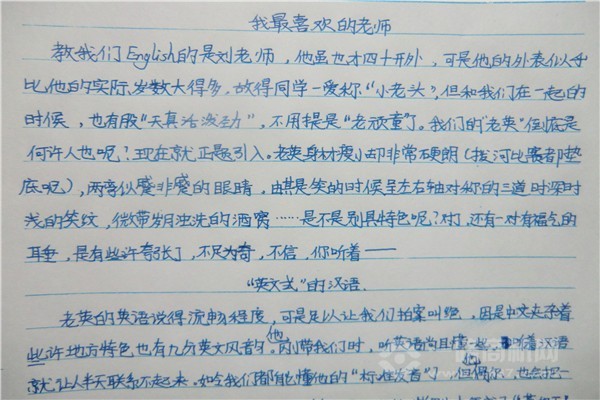 我最喜欢的老师
教我们English的是刘老师，他虽也才四十开外，可是他的外表似乎
比他的实际岁数大得多，故得同学一爱称“小老头”，但和我们在一起的
时候，也有股“天真活泼劲”，不用提是“老顽童”了。我们的“老英”到底是
何许人也呢？现在就正题引入。老英身材瘦小却非常硬朗（拔河比赛都垫
底呢），两弯似蹙非蹙的眼睛，由其是笑的时候呈左右轴对称的三道时深时
浅的笑纹，微带岁月浊洗的酒窝……是不是别具特色呢？对了，还有一对有福气的
耳垂，是有些许夸张了，不足为奇，不信，你听着——
“英文式”的汉语
老英的英语说得流畅程度，可是足以让我们拍案叫绝，因是中文夹杂着
些许地方特色也有九分英文风音的。他刚带我们时，听英语尚且懂些，听着汉语
就让人半天联系不起来。如今我们都能懂他的“标准发音”了，但偶尔他也会把一